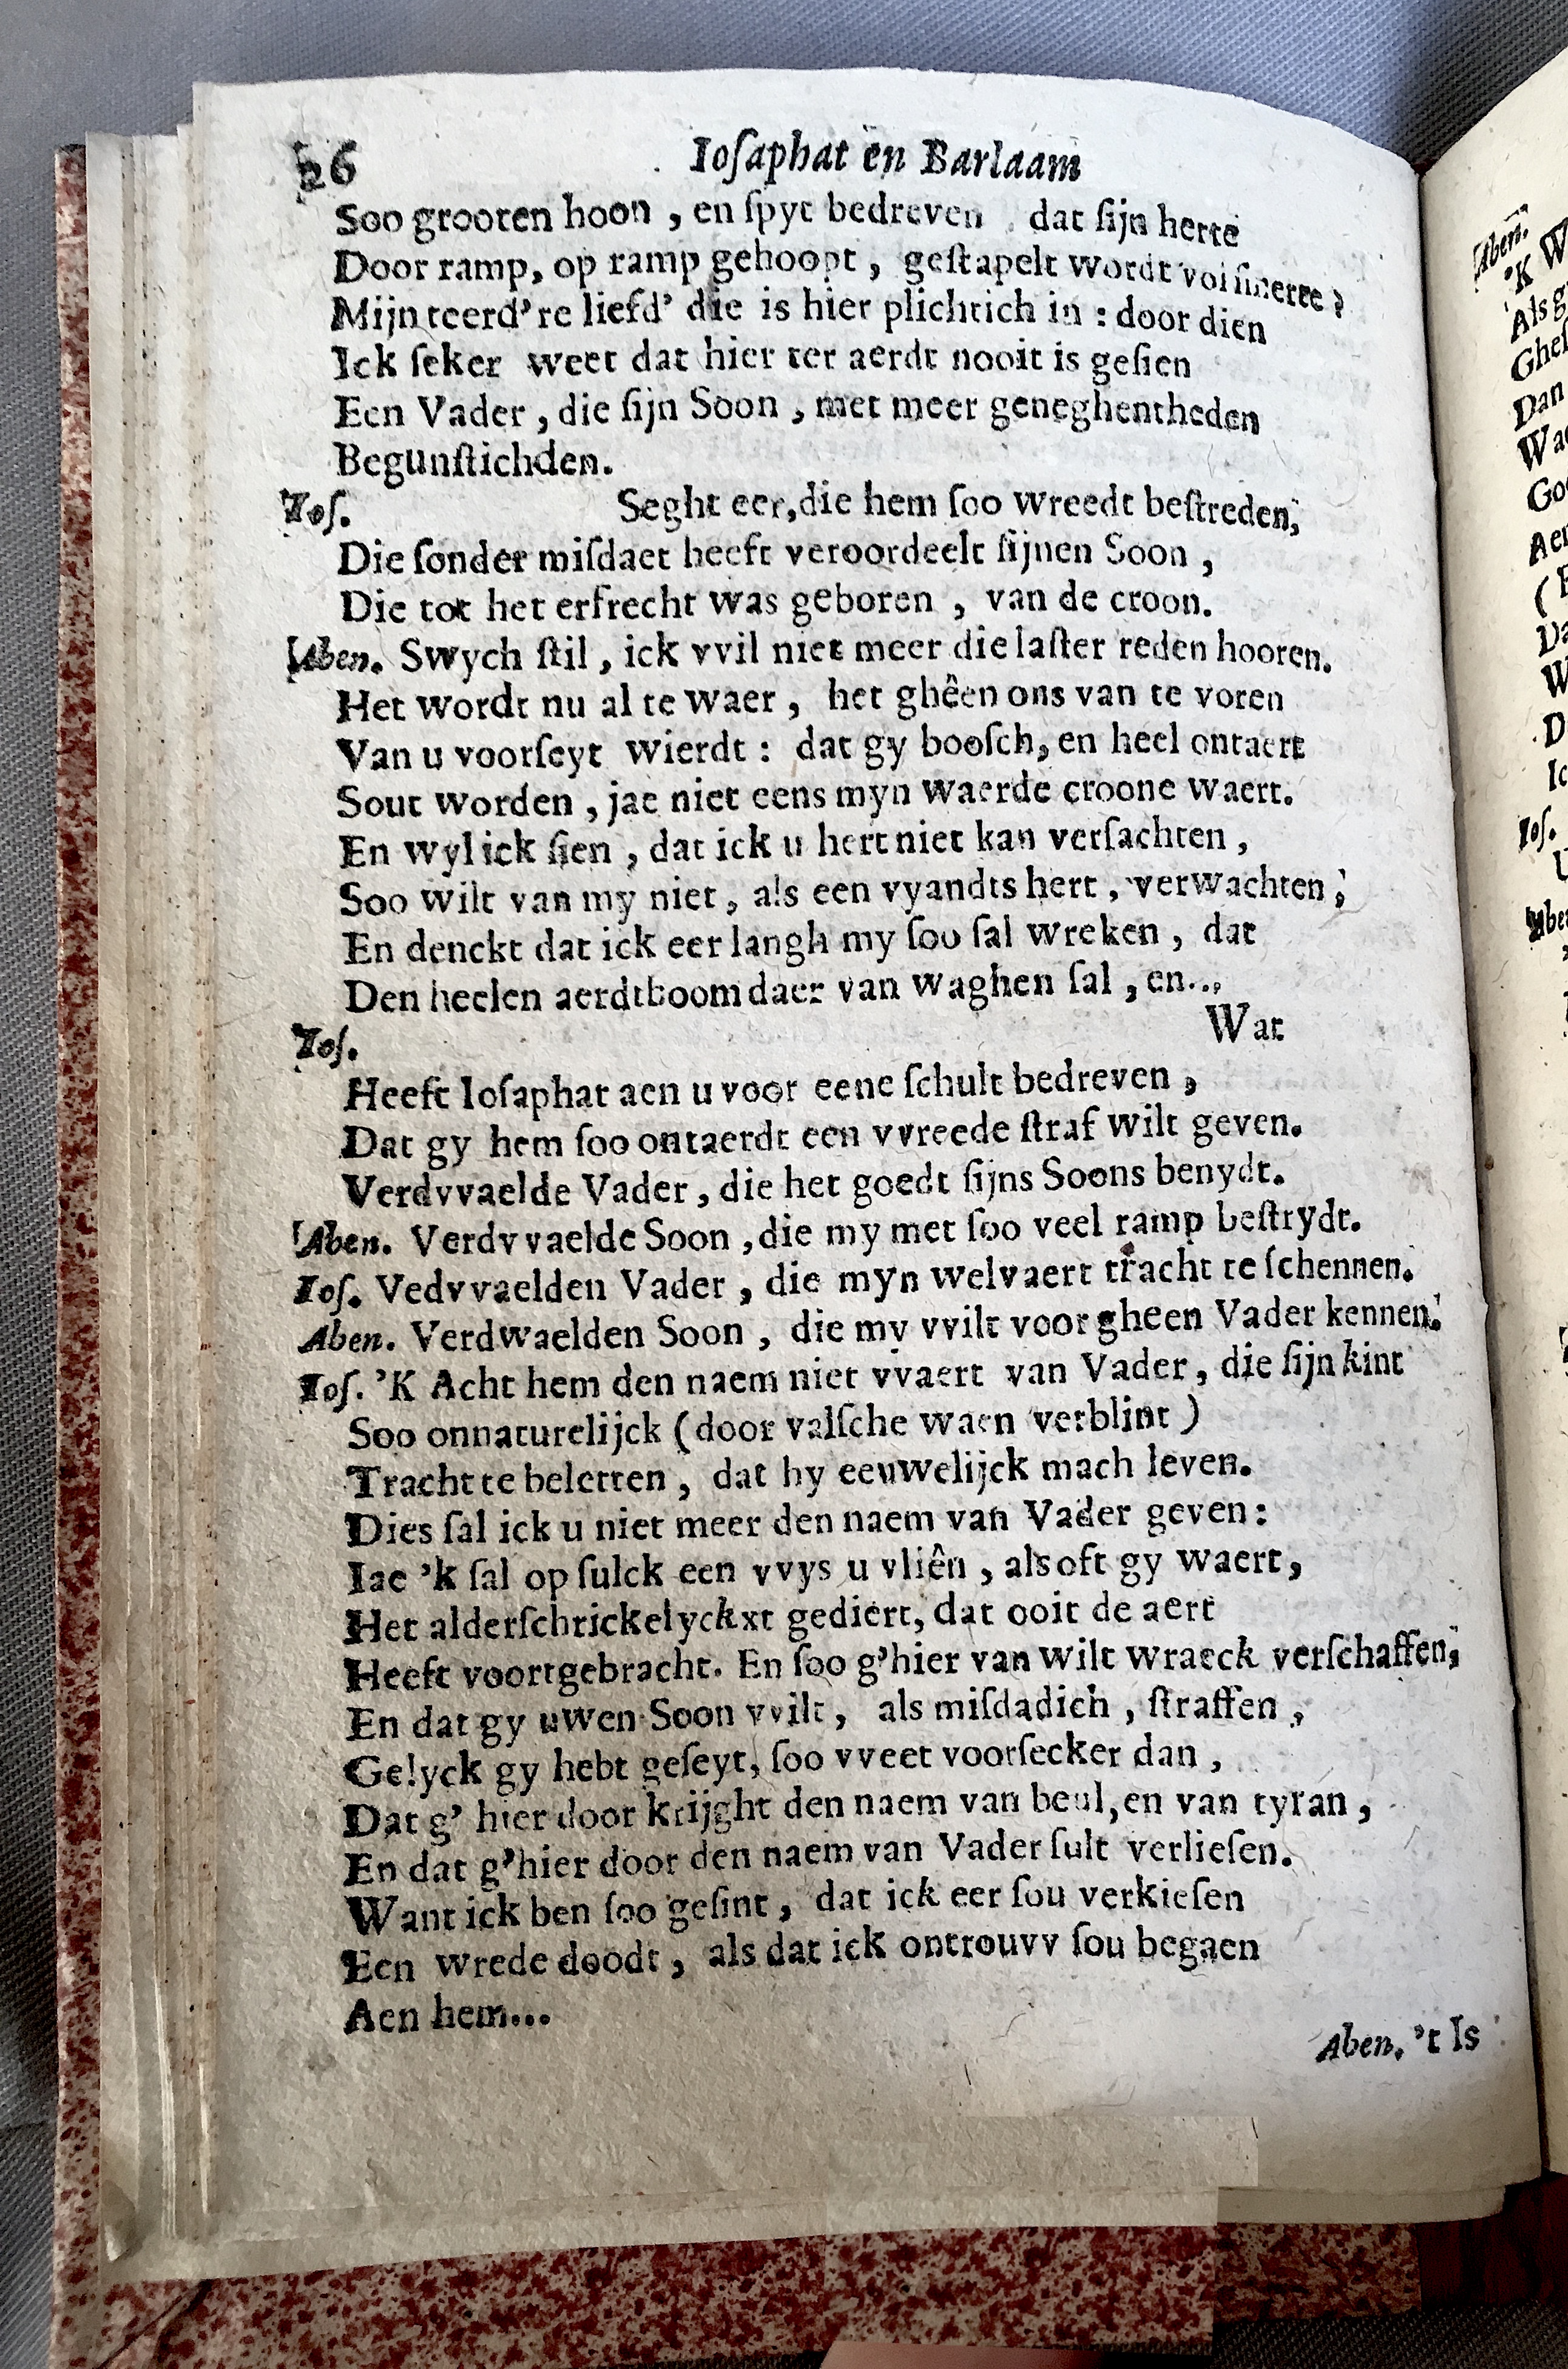 26 Ioſaphat en Barlaam
Soo grooten hoon, en ſpyt bedreven dat ſijn herte
Door ramp, op ramp gehoopt, geſtapelt wordt vol ſmerte?
Mijn teerd're liefd' die is hier plichtich in: door dien
Ick ſeker weet dat hier ter aerdt nooit is geſien
Een Vader, die ſijn Soon, met meer geneghentheden
Begunſtichden.
Ioſ. Seght eer, die hem ſoo wreedt beſtreden,
Die ſonder miſdaet heeft veroordeelt ſijnen Soon,
Die tot het erfrecht was geboren, van de croon.
Aben. Swych ſtil, ick vvil niet meer die laſter reden hooren.
Het wordt nu al te waer, het ghêen ons van te voren
Van u voorſeyt wierdt: dat gy booſch, en heel ontaert
Sout worden, jae niet eens myn waerde croone waert.
En wyl ick ſien, dat ick u hert niet kan verſachten,
Soo wilt van my niet, als een vyandts hert, verwachten;
En denckt dat ick eer langh my ſoo ſal wreken, dat
Den heelen aerdtboom daer van waghen ſal, en...
Ioſ. Wat
Heeft Ioſaphat aen u voor eene ſchult bedreven,
Dat gy hem ſoo ontaerdt een vvreede ſtraf wilt geven.
Verdvvaelde Vader, die het goedt ſijns Soons benydt.
Aben. Verdvvaelde Soon, die my met ſoo veel ramp beſtrydt.
Ioſ. Vedvvaelden Vader, die myn welvaert tracht te ſchennen.
Aben. Verdwaelden Soon, die my vvilt voor gheen Vader kennen.
Ioſ. 'K Acht hem den naem niet vvaert van Vader, die ſijn kint
Soo onnaturelijck (door valſche waen verblint)
Tracht te beletten, dat hy eeuwelijck mach leven.
Dies ſal ick u niet meer den naem van Vader geven:
Iae 'k ſal op ſulck een vvys u vliên, als oft gy waert,
Het alderſchrickelyckxt gediert, dat ooit de aert
Heeft voortgebracht. En ſoo g'hier van wilt wraeck verſchaffen,
En dat gy uwen Soon vvilt, als miſdadich, ſtraffen,
Gelyck gy hebt geſeyt, ſoo vveet voorſecker dan,
Dat g' hier door krijght den naem van beul, en van tyran,
En dat g'hier door den naem van Vader ſult verlieſen.
Want ick ben ſoo geſint, dat ick eer ſou verkieſen
Een wrede doodt, als dat ick ontrouvv ſou begaen
Aen hem...
Aben. 't Is
Aben.
'K
Als
Dan
Ioſ.